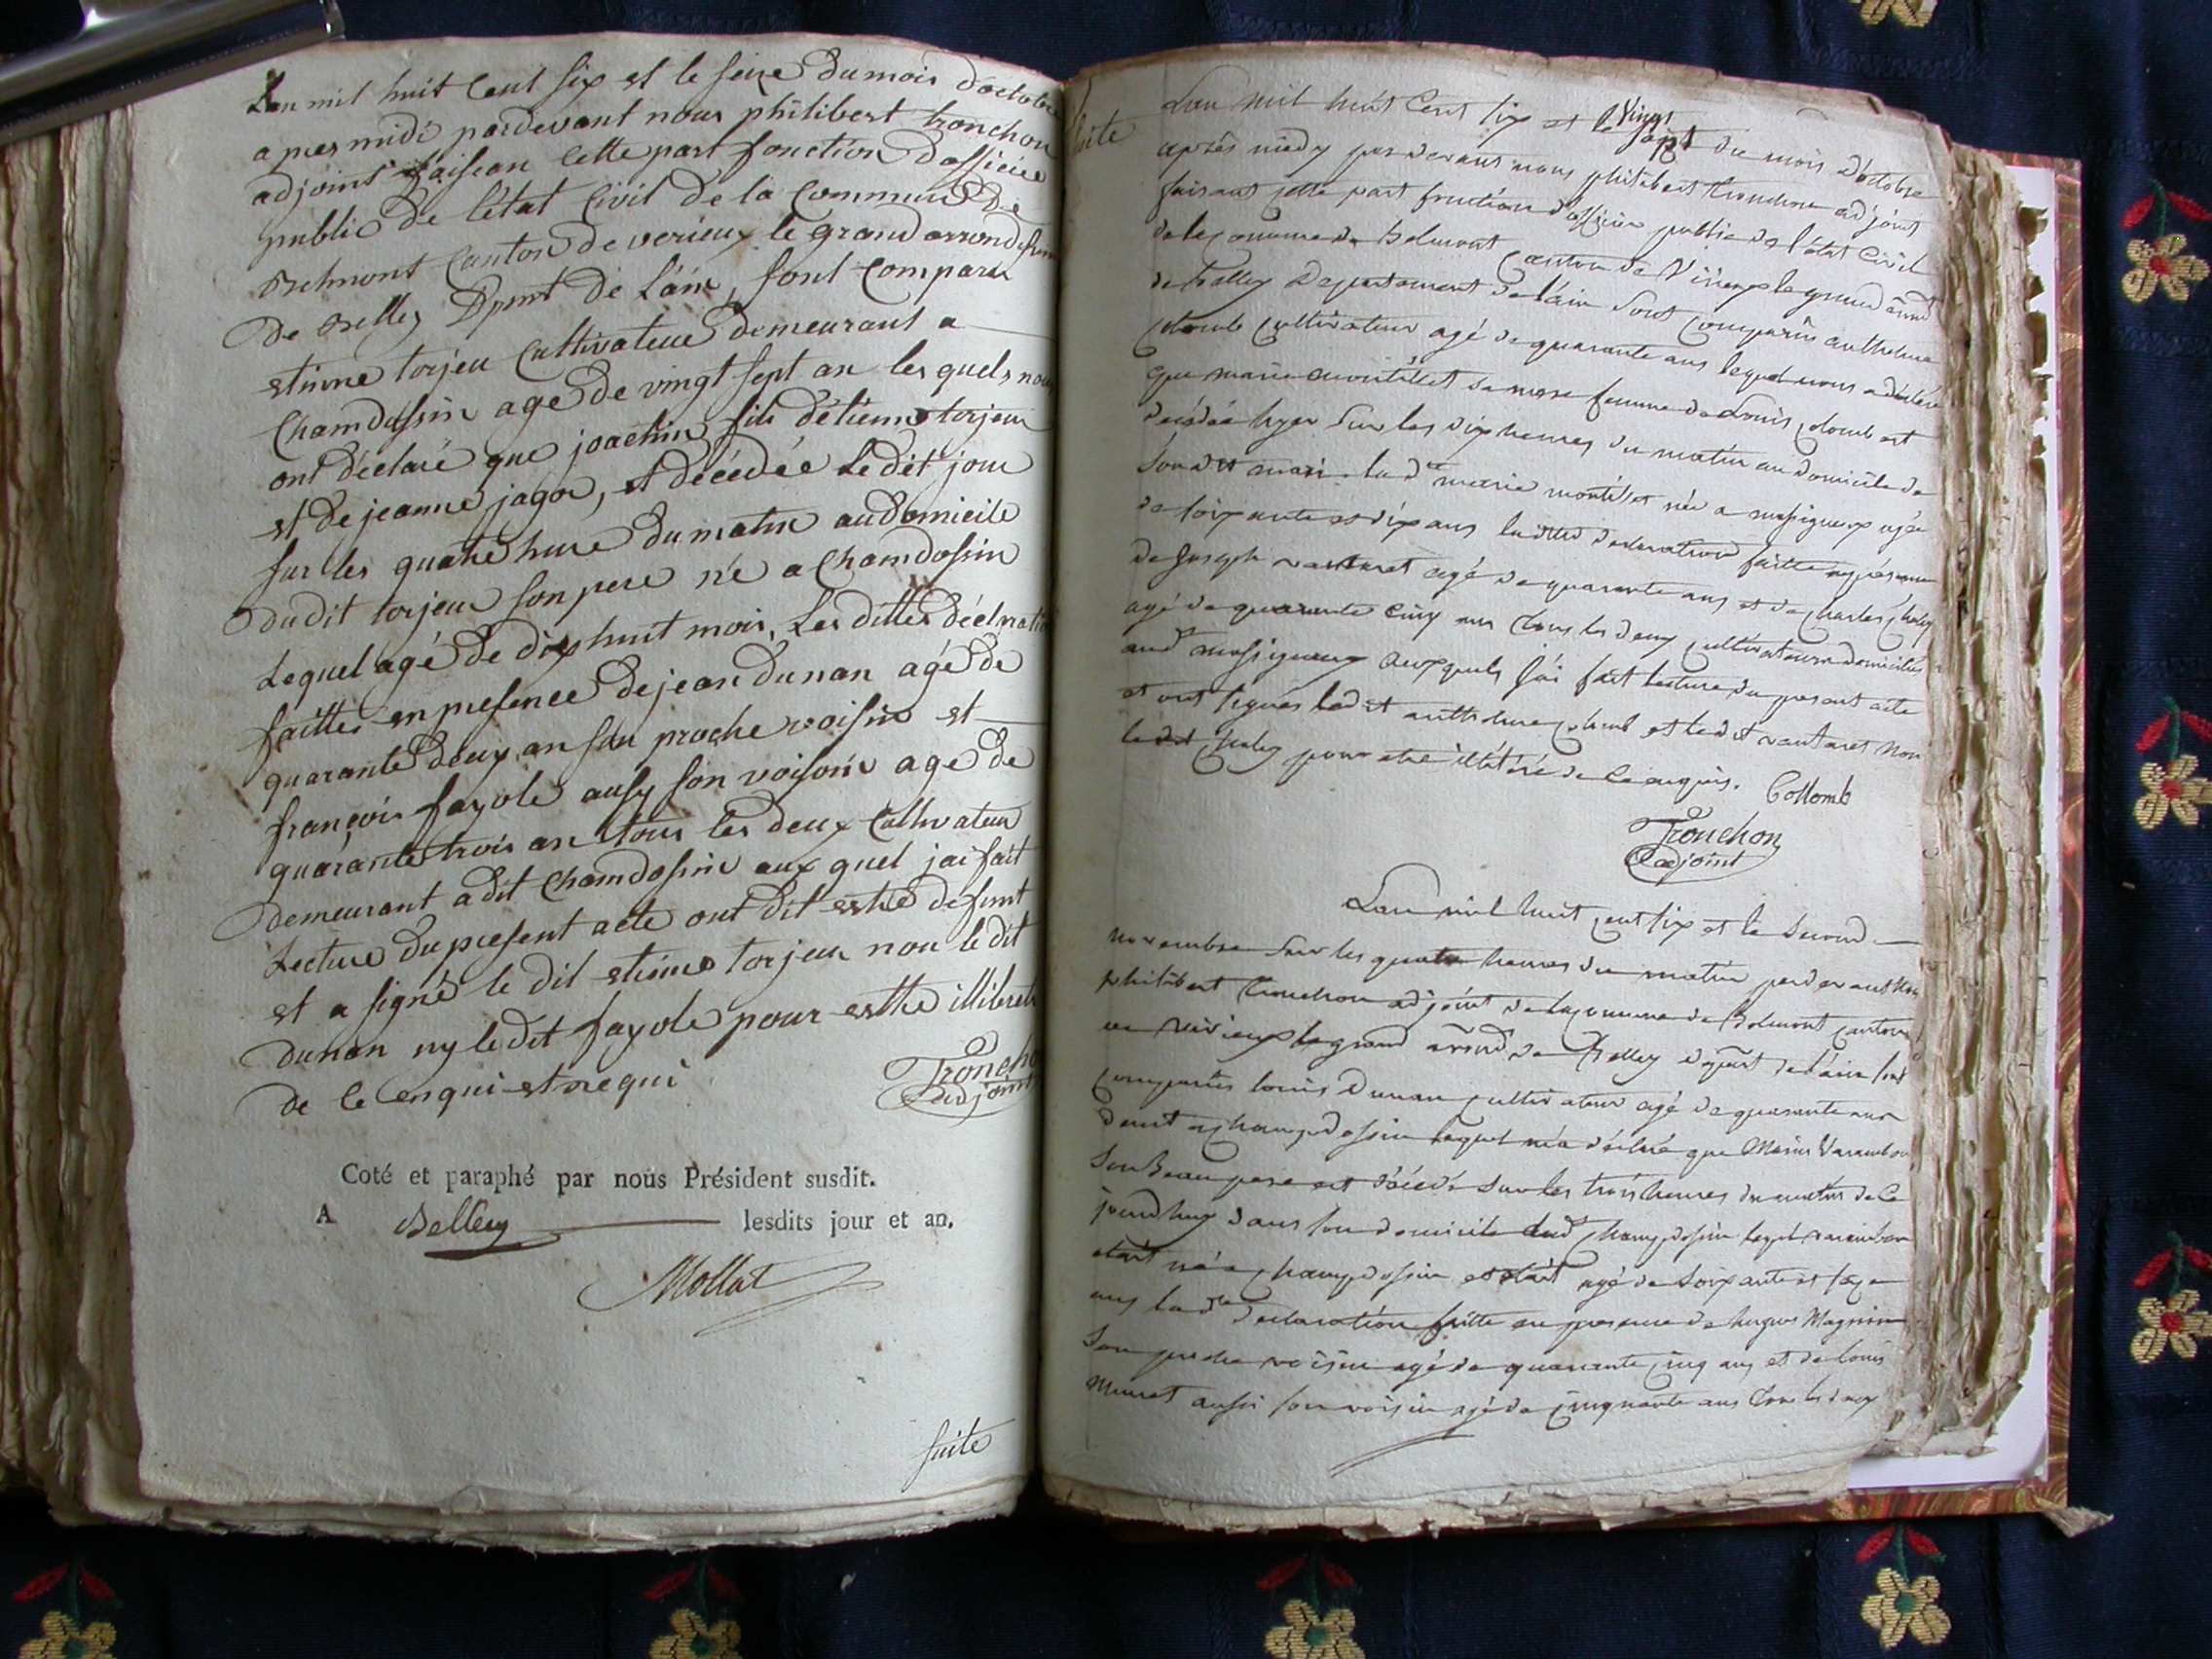 Lan mil huit Cent six et le seize du mois doctobre
apres midi pardevant nous philibert tronchon
adjoint faisean cette part fonction dofficiee
public de létat Civil de la Commune de
Belmont Canton de verieux le grand arrondissem
de Belley Dpmt de Lain, sont Comparu
etienne torjeu Cultivateur demeurant a
Chamdossin agé de vingt sept an les quels nous
ont déclaré que joachin fils détienne torjeu
et de jeanne jagou, et décédée Ledit jour
sur les quatre hure du matin au domicile
dudit torjeu son pere né a Chamdossin
Lequel agé de dix huit mois, Les dittes déclaratio
faittes en presence de jean dunan agé de
quarante deux an son proche voisin et
françois fayole ausy son voisoin agé de
quarante trois an tous les deux Cultivateur
demeurant adit Chamdossin aux quel jai fait
Lecture du present acte ont dit estre defunt
et a signé le dit etienne torjeu non le dit
dunan ny le dit fayole pour estre illiteré
de Ce enqui et requi
Tronchon
adjoint
Coté et paraphé par nous Président susdit.
A Belley lesdits jour et an.
Mollat
suite
suite
Lan mil huit Cent six et le Vingt sept du mois d'octobre
après midy par devant nous philibert tronchon adjoint
faisant cette part fonction d'officier public de l'état Civil
de la comune de Belmont canton de Virieux le grand arrond
de Belley departement de lain sont comparus anthelme
Colomb cultivateur agé de quarante ans lequel nous a déclaré
que marie montillet sa mere femme de Louis Colomb est
decédée hyer sur les dix heures du matin au domicile de
son dit mari. la d.te marie montillet née a massigneux agée
de soixante et dix ans laditte declaration faitte en présence
de joseph vantaret agé de quarante ans et de charles chaley
agé de quarante cinq ans tous les deux cultivateurs domiciliés
aud massigneux auxquels j'ai fait lecture du present acte
et ont signés ledit anthelme Colomb et ledit vantaret non
le dit Chaley pour etre illitéré de ce enquis. Collomb
Tronchon
adjoint
Lan mil huit cent six et le second
novembre sur les quatre heures du matin par devant nous
philibert tronchon adjoint de la comune de Belmont canton
de virieux le grand arrond de Belley depart de lain sont
comparus louis Dunan cultivateur agé de quarante ans
demt a champdossin lequel m'a déclaré que Marin Varambon
son Beau pere est décédé sur les trois heures du matin de ce
jourdhuy dans son domicile aud champdossin lequel varambon
etoit né a champdossin et etoit agé de soixante et seze
ans lad.te declaration faitte en presence de hugues Magnin
son proche voisin agé de quarante cinq ans et de louis
Munet aussi son voisin agé de cinquante ans tous les deux